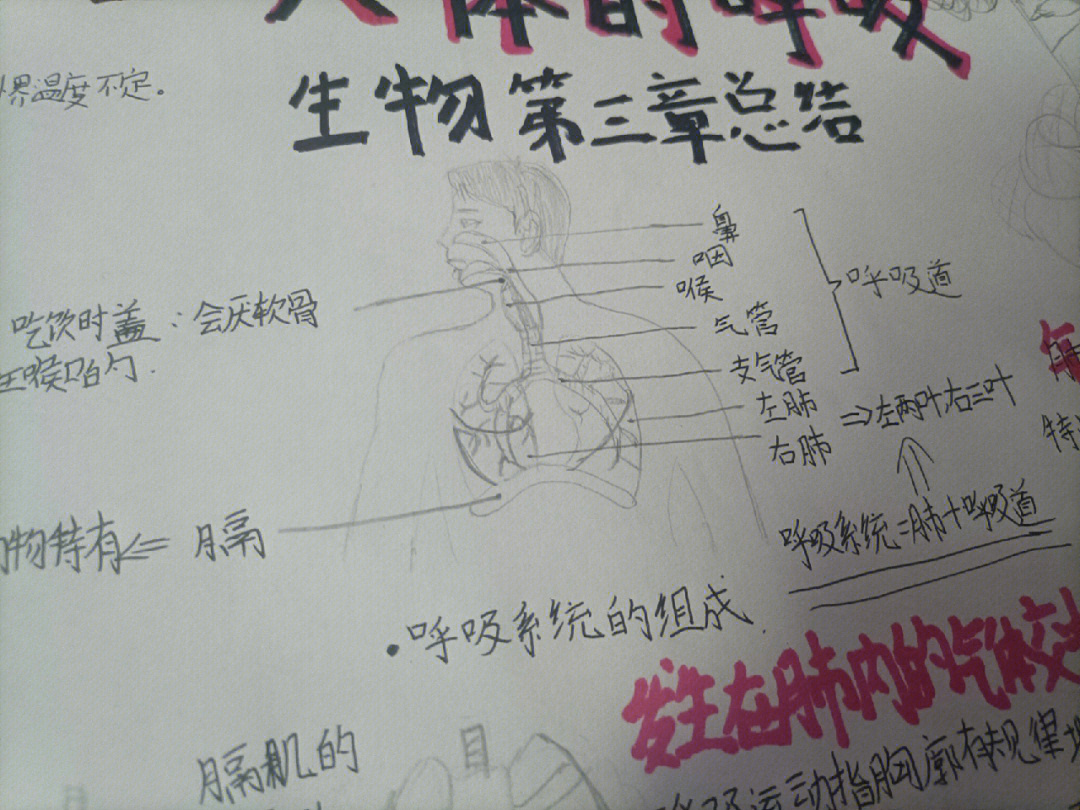 人体的呼吸
界温度不定.
生物第三章总结
鼻
咽
喉
气管
支气管
呼吸道
左肺
右肺
⇒左两叶,右三叶
吃饮时盖:会厌软骨
喉口白勺.
物特有⇐ 膈
呼吸系统=肺+呼吸道
·呼吸系统的组成.
发生在肺内的气体交
膈肌的
呼吸运动指胸廓有规律地